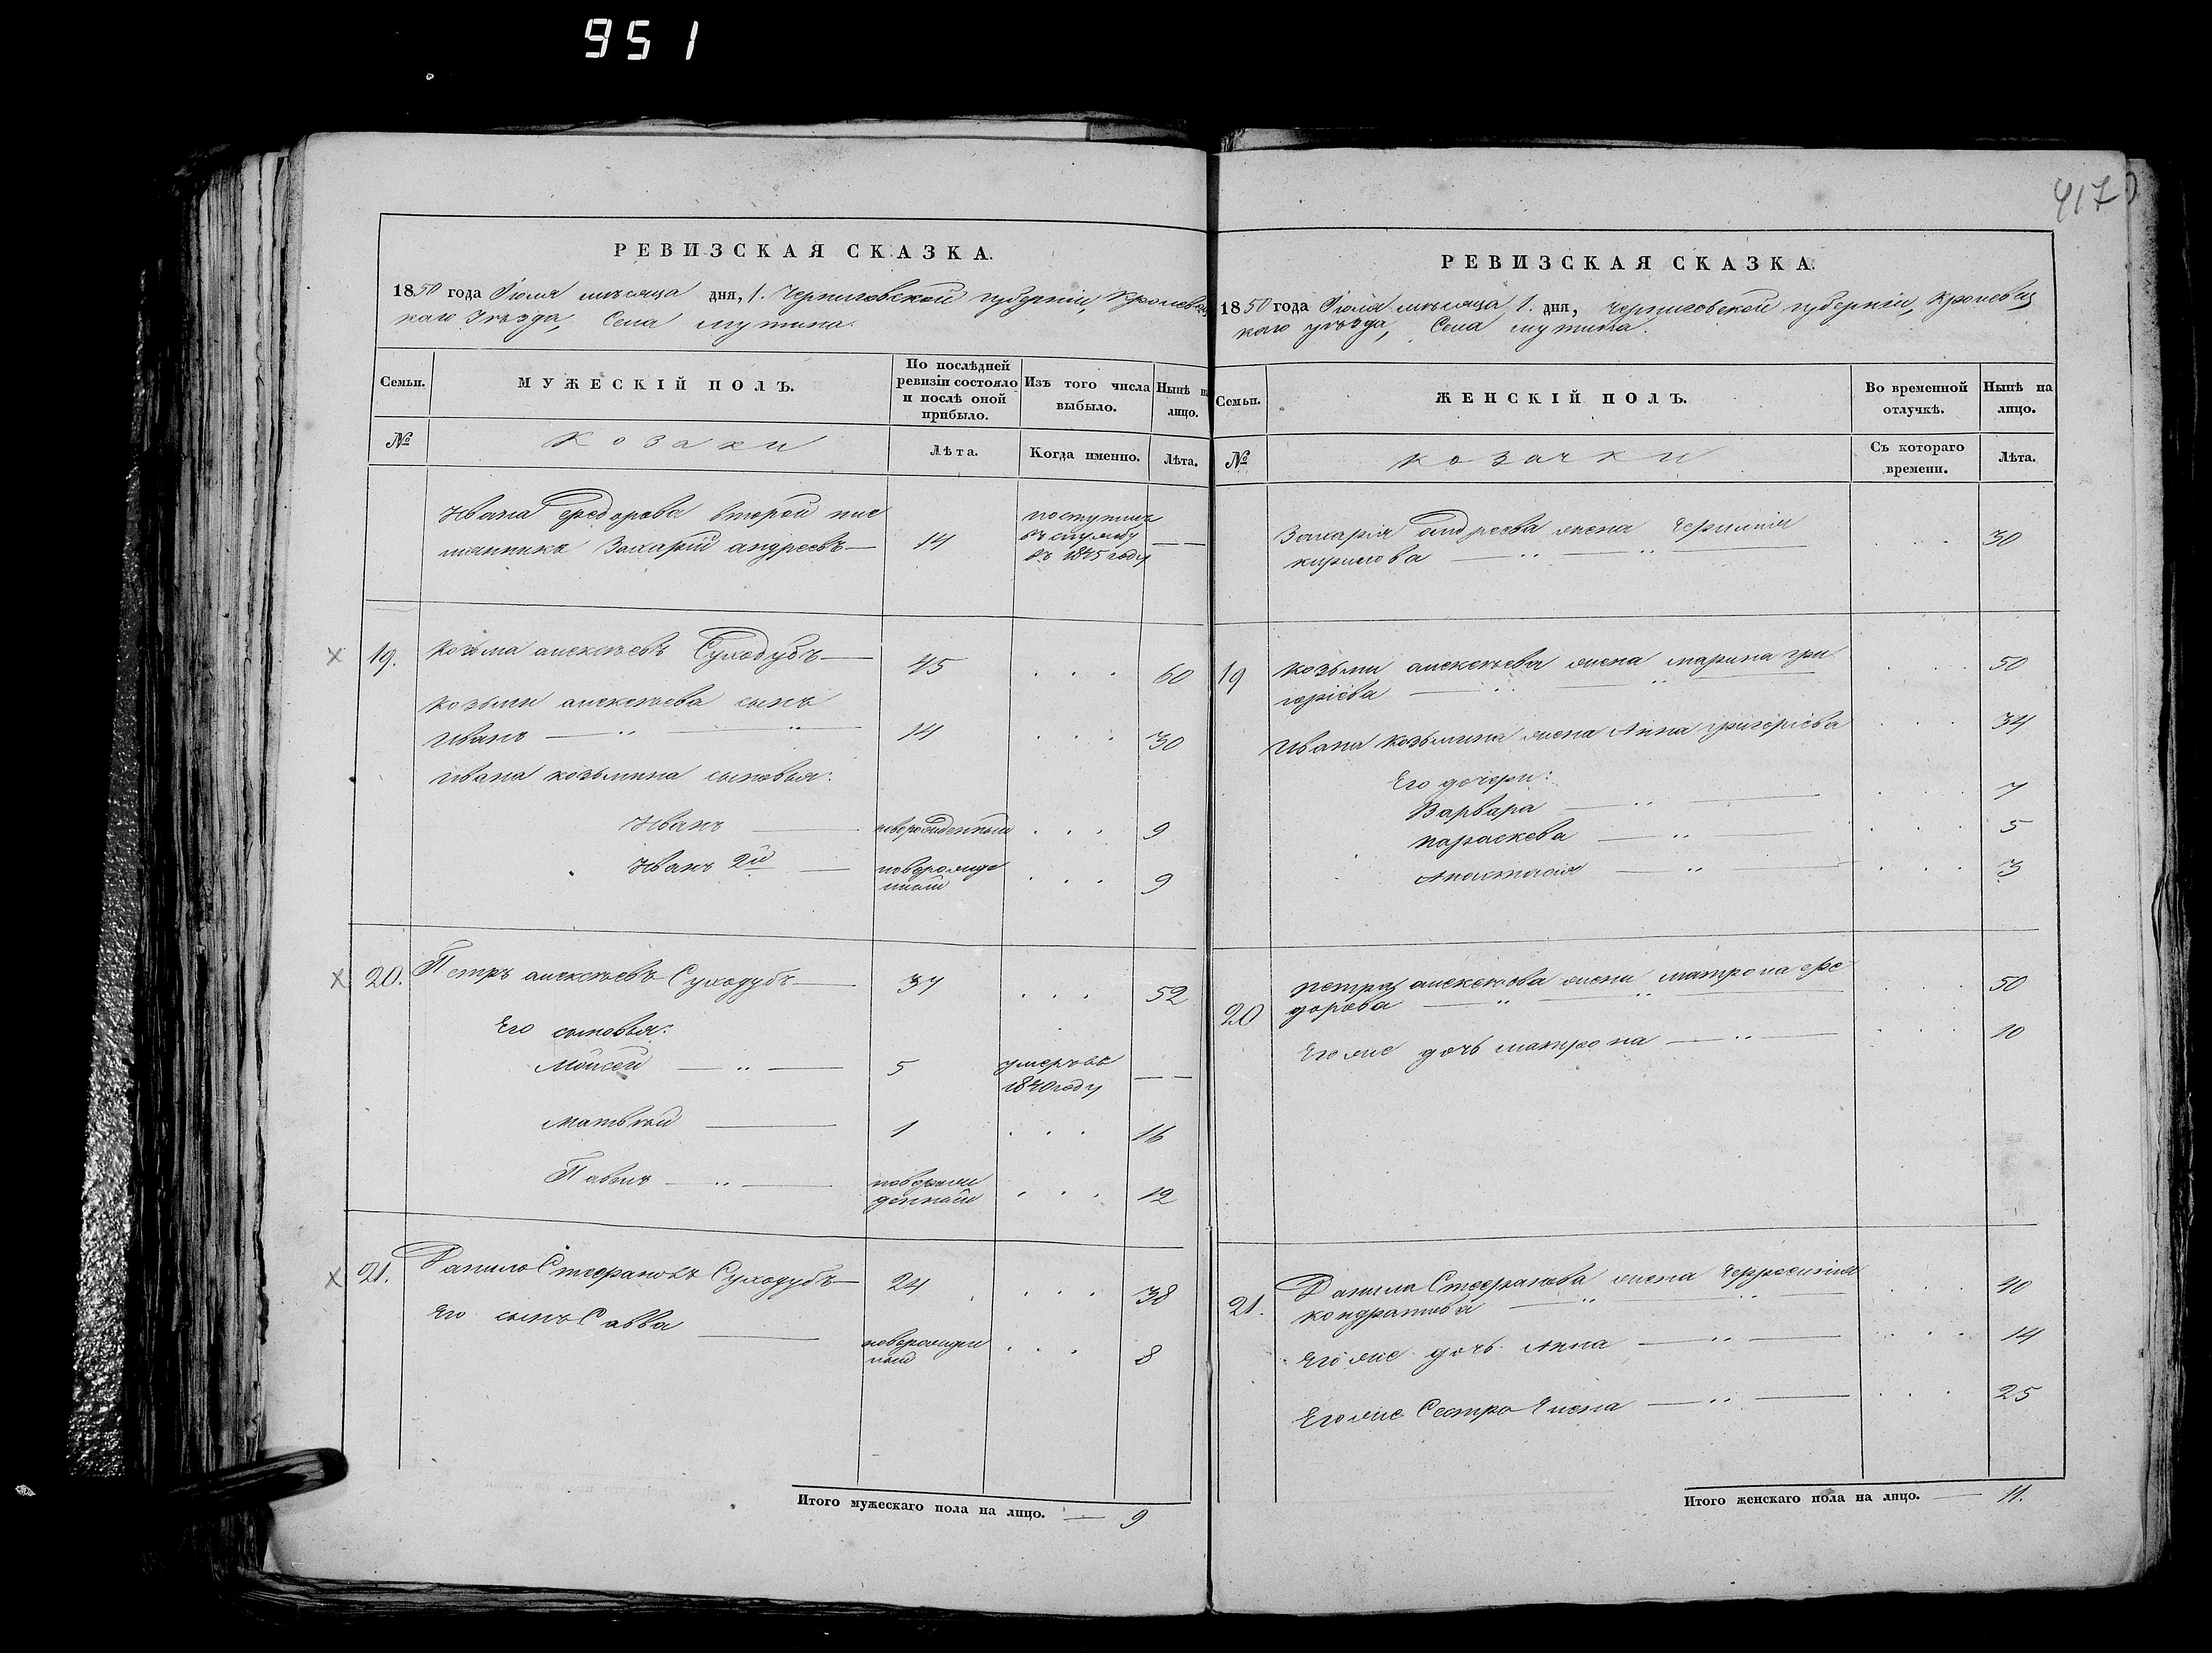 951
417
РЕВИЗСКАЯ СКАЗКА.
1850 года Іюля мѣсяца дня, 1. Черниговской губерніи, Кролевец
каго Уѣзда, Села мутина.
Семьи.
МУЖЕСКІЙ ПОЛЪ.
По послѣдней
ревизіи состояло
и послѣ оной
прибыло.
Изъ того числа
выбыло.
Нынѣ на
лицо.
№
Козаки
Лѣта.
Когда именно.
Лѣта.
Ивана Федорова второй пле
мянникъ Захарій андреевъ — 14 поступилъ
въ службу
въ 1845 году — —
19. Козьма алексѣевъ Суходубъ — 45 . . . 60
Козьмы алексѣева сынъ
Иванъ — „ — „ — 14 . . . 30
Ивана козьмина сыновья:
Иванъ — новорожденный . . . 9
Иванъ 2й — новорожде
нный . . . 9
20. Петръ алексѣевъ Суходубъ — 37 . . . 52
Его сыновья:
Мойсей — „ — 5 умеръ въ
1840 году — —
Матвѣй — 1 . . . 16
Павелъ — „ — новорож
денный . . . 12
21. Данило Стефановъ Суходубъ — 24 . . . 38
Его сынъ Савва — новорожден
ный . . . 8
Итого мужескаго пола на лицо. — 9
РЕВИЗСКАЯ СКАЗКА.
1850 года Іюля мѣсяца 1. дня, Черниговской губерніи, Кролевец
каго уѣзда, Села мутина.
Семьи.
ЖЕНСКІЙ ПОЛЪ.
Во временной
отлучкѣ.
Нынѣ на
лицо.
№
Козачки
Съ котораго
времени.
Лѣта.
Захарія андреева жена
кирилова — „ — „ — . . . 30
19 Козьмы алексѣева жена марина гри
горіева — „ — „ — . . . 50
Ивана Козьмина жена Анна григоріева . . . 34
Его дочери:
Варвара — „ — . . . 7
параскева — „ — . . . 5
Анастасія — „ — . . . 3
20 петра алексѣева жена матрона фе
дорова — „ — „ — . . . 50
Его же дочь матрона — „ — . . . 10
21. Данила Стефанова жена Ефросинія
кондратьева — „ — „ — . . . 40
Его же дочь Анна — „ — . . . 14
Его же Сестра Елена — „ — . . . 25
Итого женскаго пола на лицо. — 11.